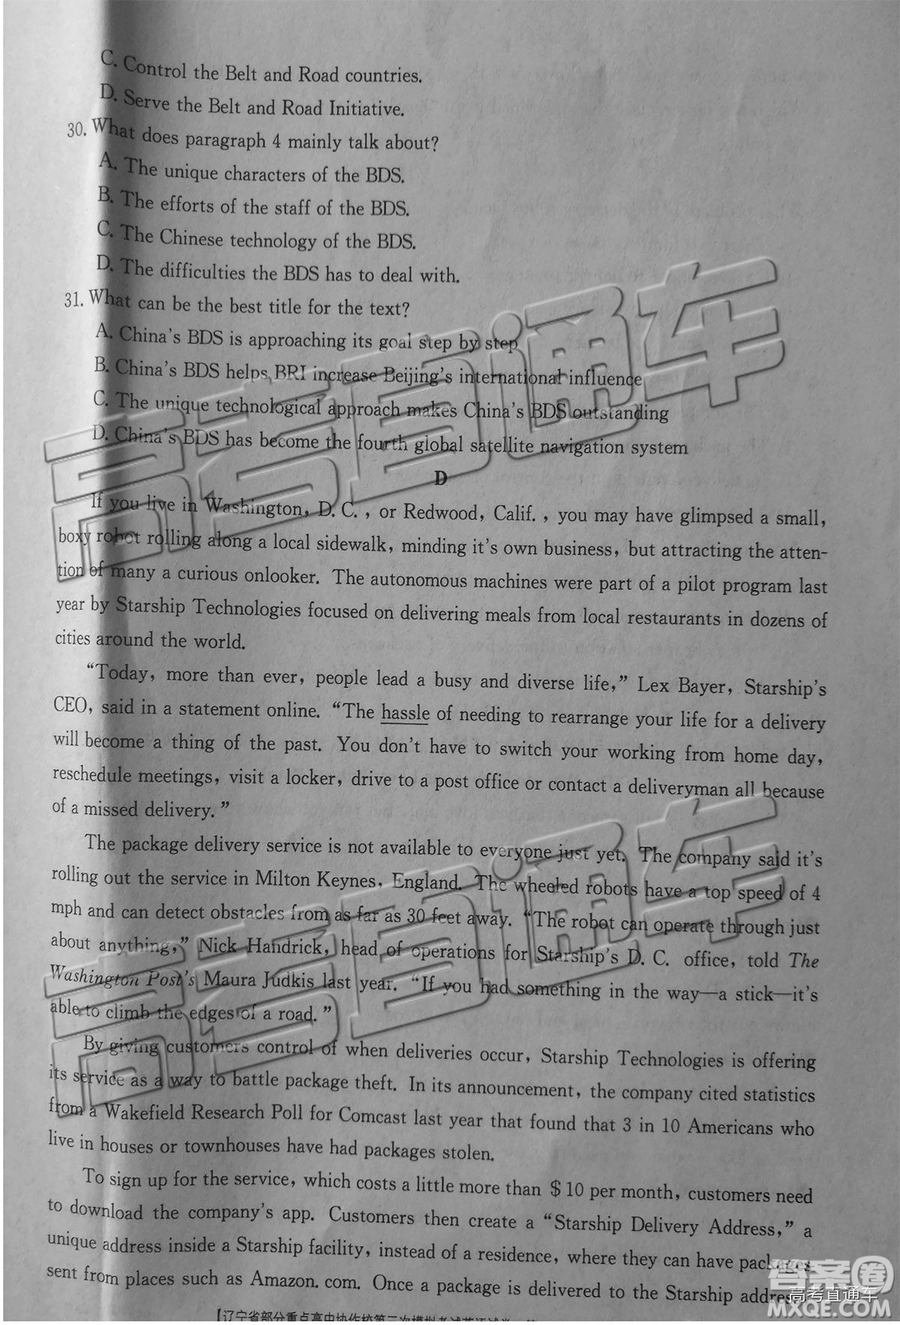 C. Control the Belt and Road countries.
D. Serve the Belt and Road Initiative.
30. What does paragraph 4 mainly talk about?
A. The unique characters of the BDS.
B. The efforts of the staff of the BDS.
C. The Chinese technology of the BDS.
D. The difficulties the BDS has to deal with.
31. What can be the best title for the text?
A. China's BDS is approaching its goal step by step
B. China's BDS helps BRI increase Beijing's international influence
C. The unique technological approach makes China's BDS outstanding
D. China's BDS has become the fourth global satellite navigation system
D
If you live in Washington, D. C. , or Redwood, Calif. , you may have glimpsed a small,
boxy robot rolling along a local sidewalk, minding it's own business, but attracting the atten-
tion of many a curious onlooker. The autonomous machines were part of a pilot program last
year by Starship Technologies focused on delivering meals from local restaurants in dozens of
cities around the world.
“Today, more than ever, people lead a busy and diverse life,” Lex Bayer, Starship's
CEO, said in a statement online. “The hassle of needing to rearrange your life for a delivery
will become a thing of the past. You don't have to switch your working from home day,
reschedule meetings, visit a locker, drive to a post office or contact a deliveryman all because
of a missed delivery. ”
The package delivery service is not available to everyone just yet. The company said it's
rolling out the service in Milton Keynes, England. The wheeled robots have a top speed of 4
mph and can detect obstacles from as far as 30 feet away. “The robot can operate through just
about anything,” Nick Handrick, head of operations for Starship's D. C. office, told The
Washington Post's Maura Judkis last year. “If you had something in the way—a stick—it's
able to climb the edges of a road. ”
By giving customers control of when deliveries occur, Starship Technologies is offering
its service as a way to battle package theft. In its announcement, the company cited statistics
from a Wakefield Research Poll for Comcast last year that found that 3 in 10 Americans who
live in houses or townhouses have had packages stolen.
To sign up for the service, which costs a little more than $ 10 per month, customers need
to download the company's app. Customers then create a “Starship Delivery Address,” a
unique address inside a Starship facility, instead of a residence, where they can have packages
sent from places such as Amazon. com. Once a package is delivered to the Starship address,
【辽宁省部分重点高中协作校第三次模拟考试英语试卷
高考直通车
高考直通车
答案圈
高考直通车
MXQE.COM